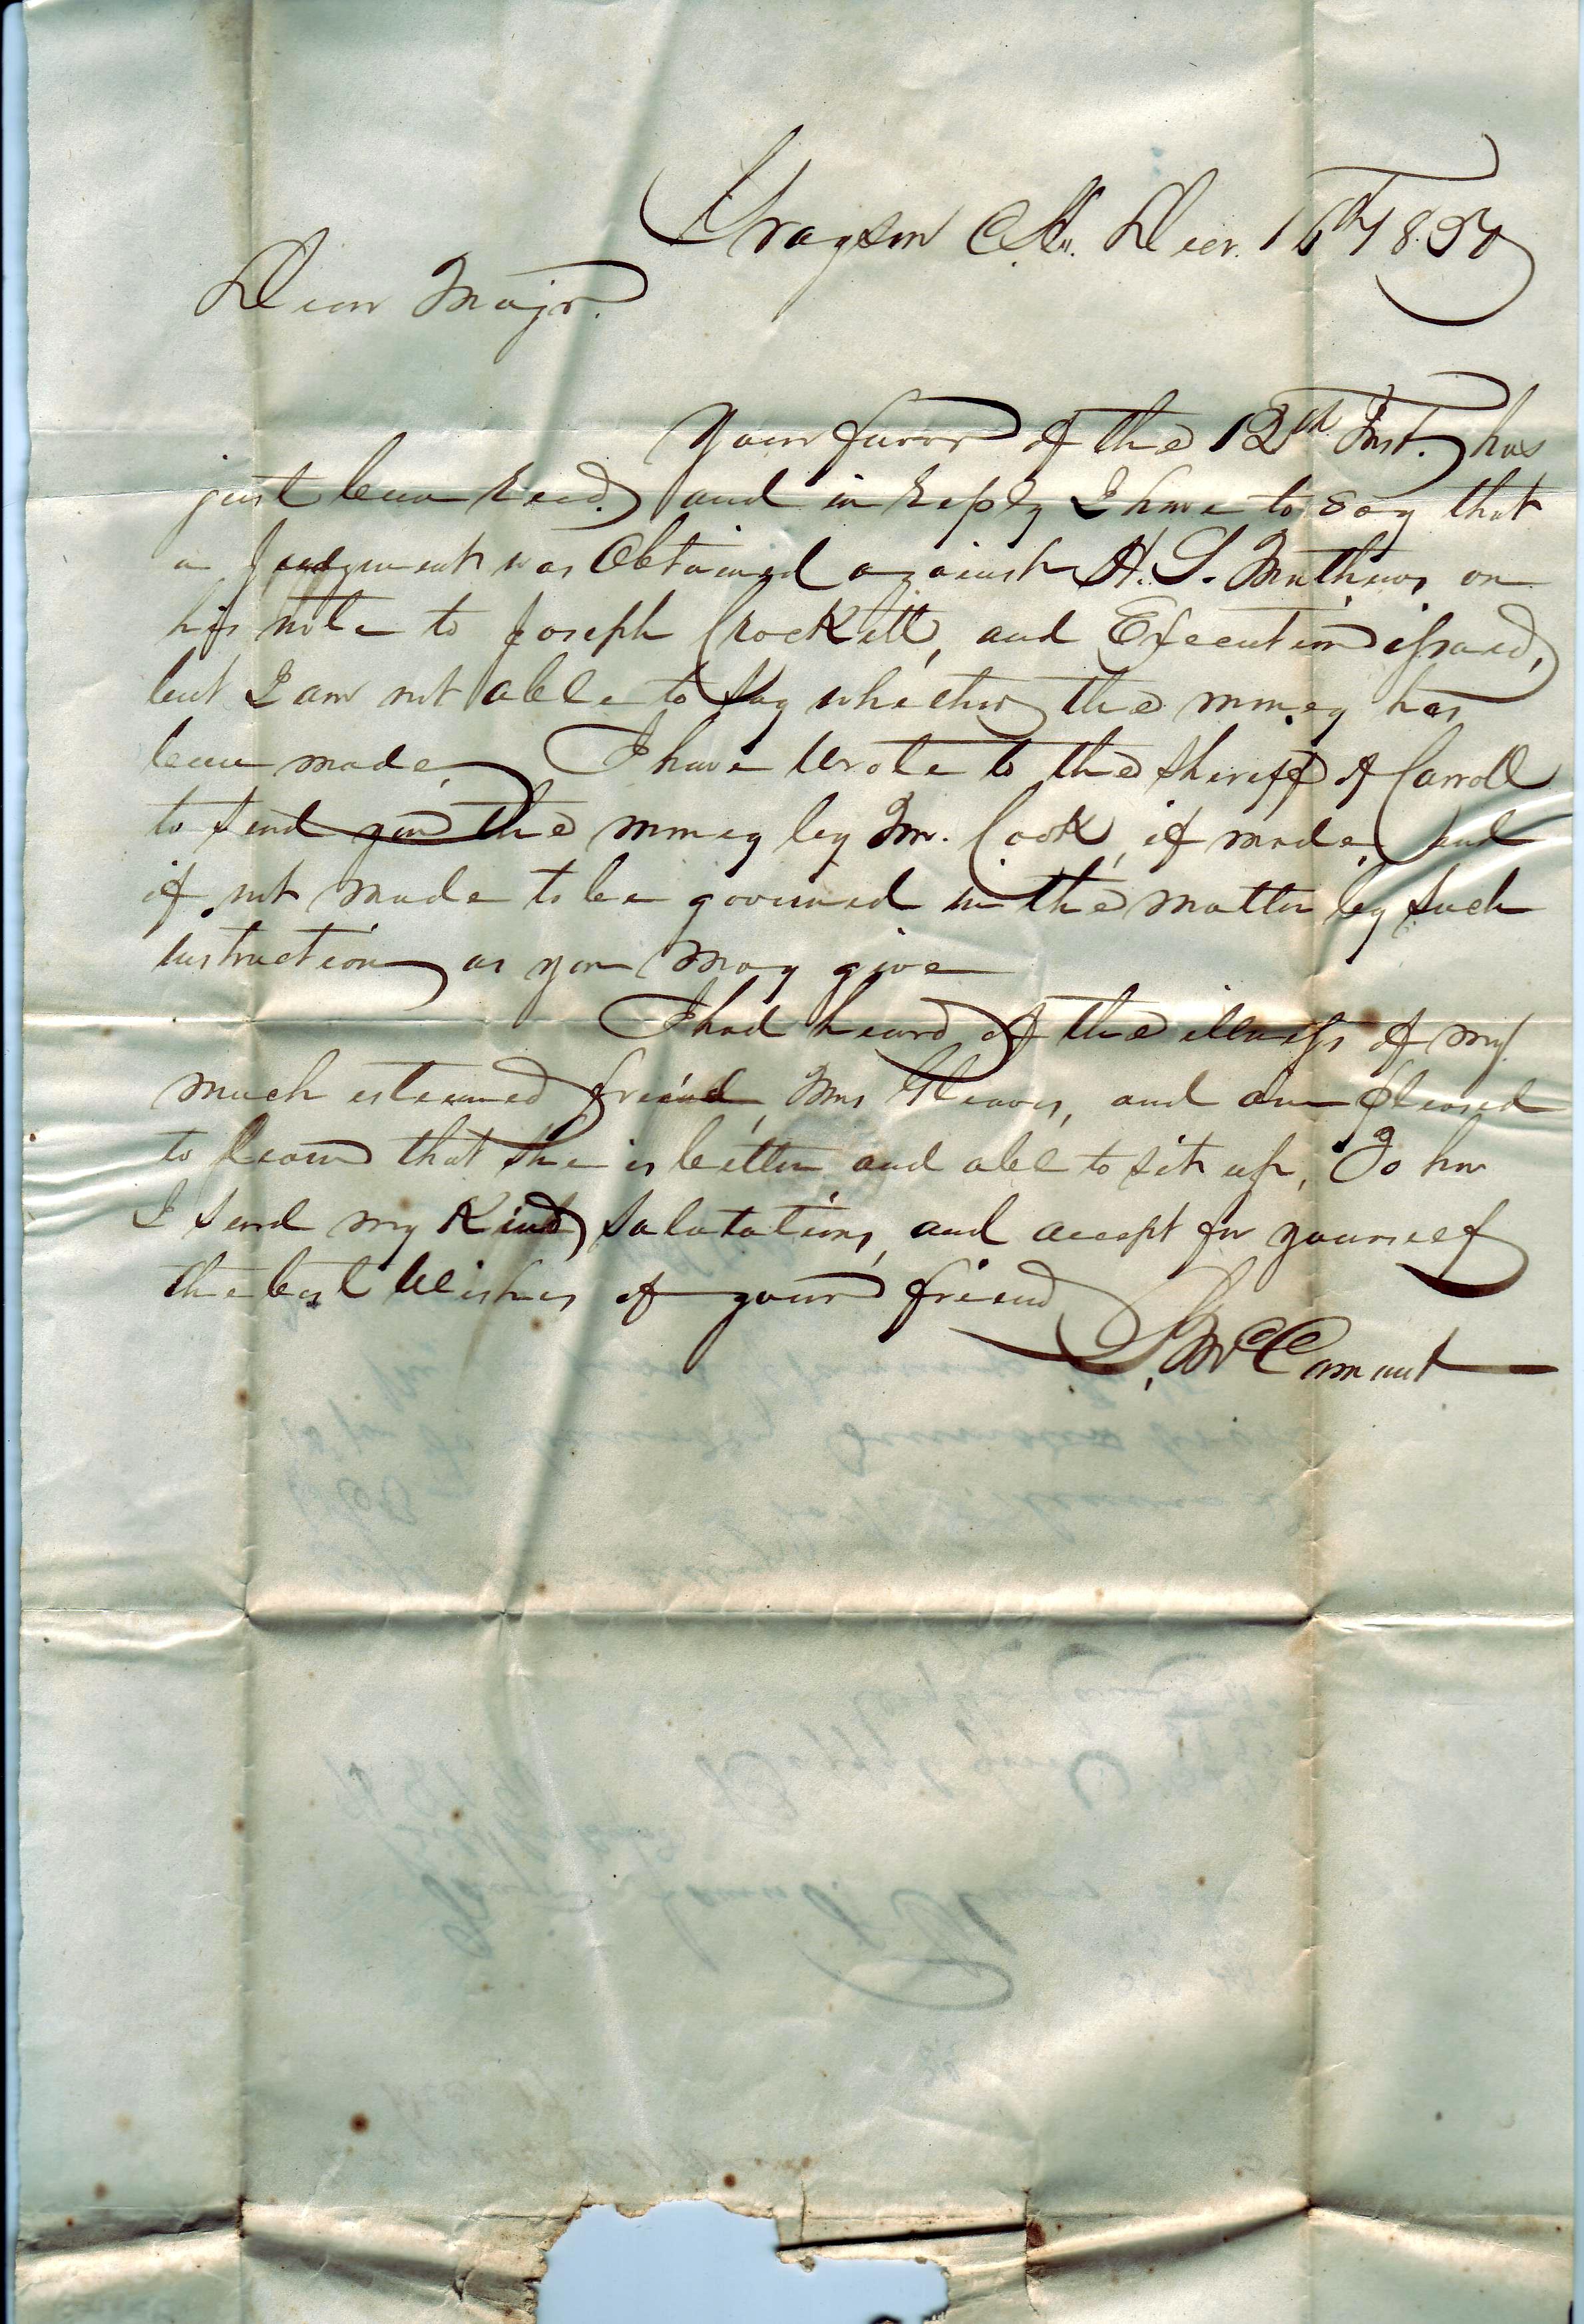 Grayson C.H. Decr. 16th 1850
Dear Majr.
Your favor of the 12th Inst. has
just been Recd. and in Reply I have to say that
a Judgment was Obtained against H. S. Mathews on
his note to Joseph Crockett, and Execution issued,
but I am not able to say whether the money has
been made, I have Wrote to the Sheriff of Carroll
to send you the money by Mr. Cook, if made, and
if not made to be governed in the matter by such
instruction as you may give
I had heard of the illness of my
much esteemed friend, Mrs Gleaves, and am pleased
to learn that she is better and able to sit up, To her
I send my Kind salutations, and accept for yourself
the best Wishes of your friend
S. McCamant